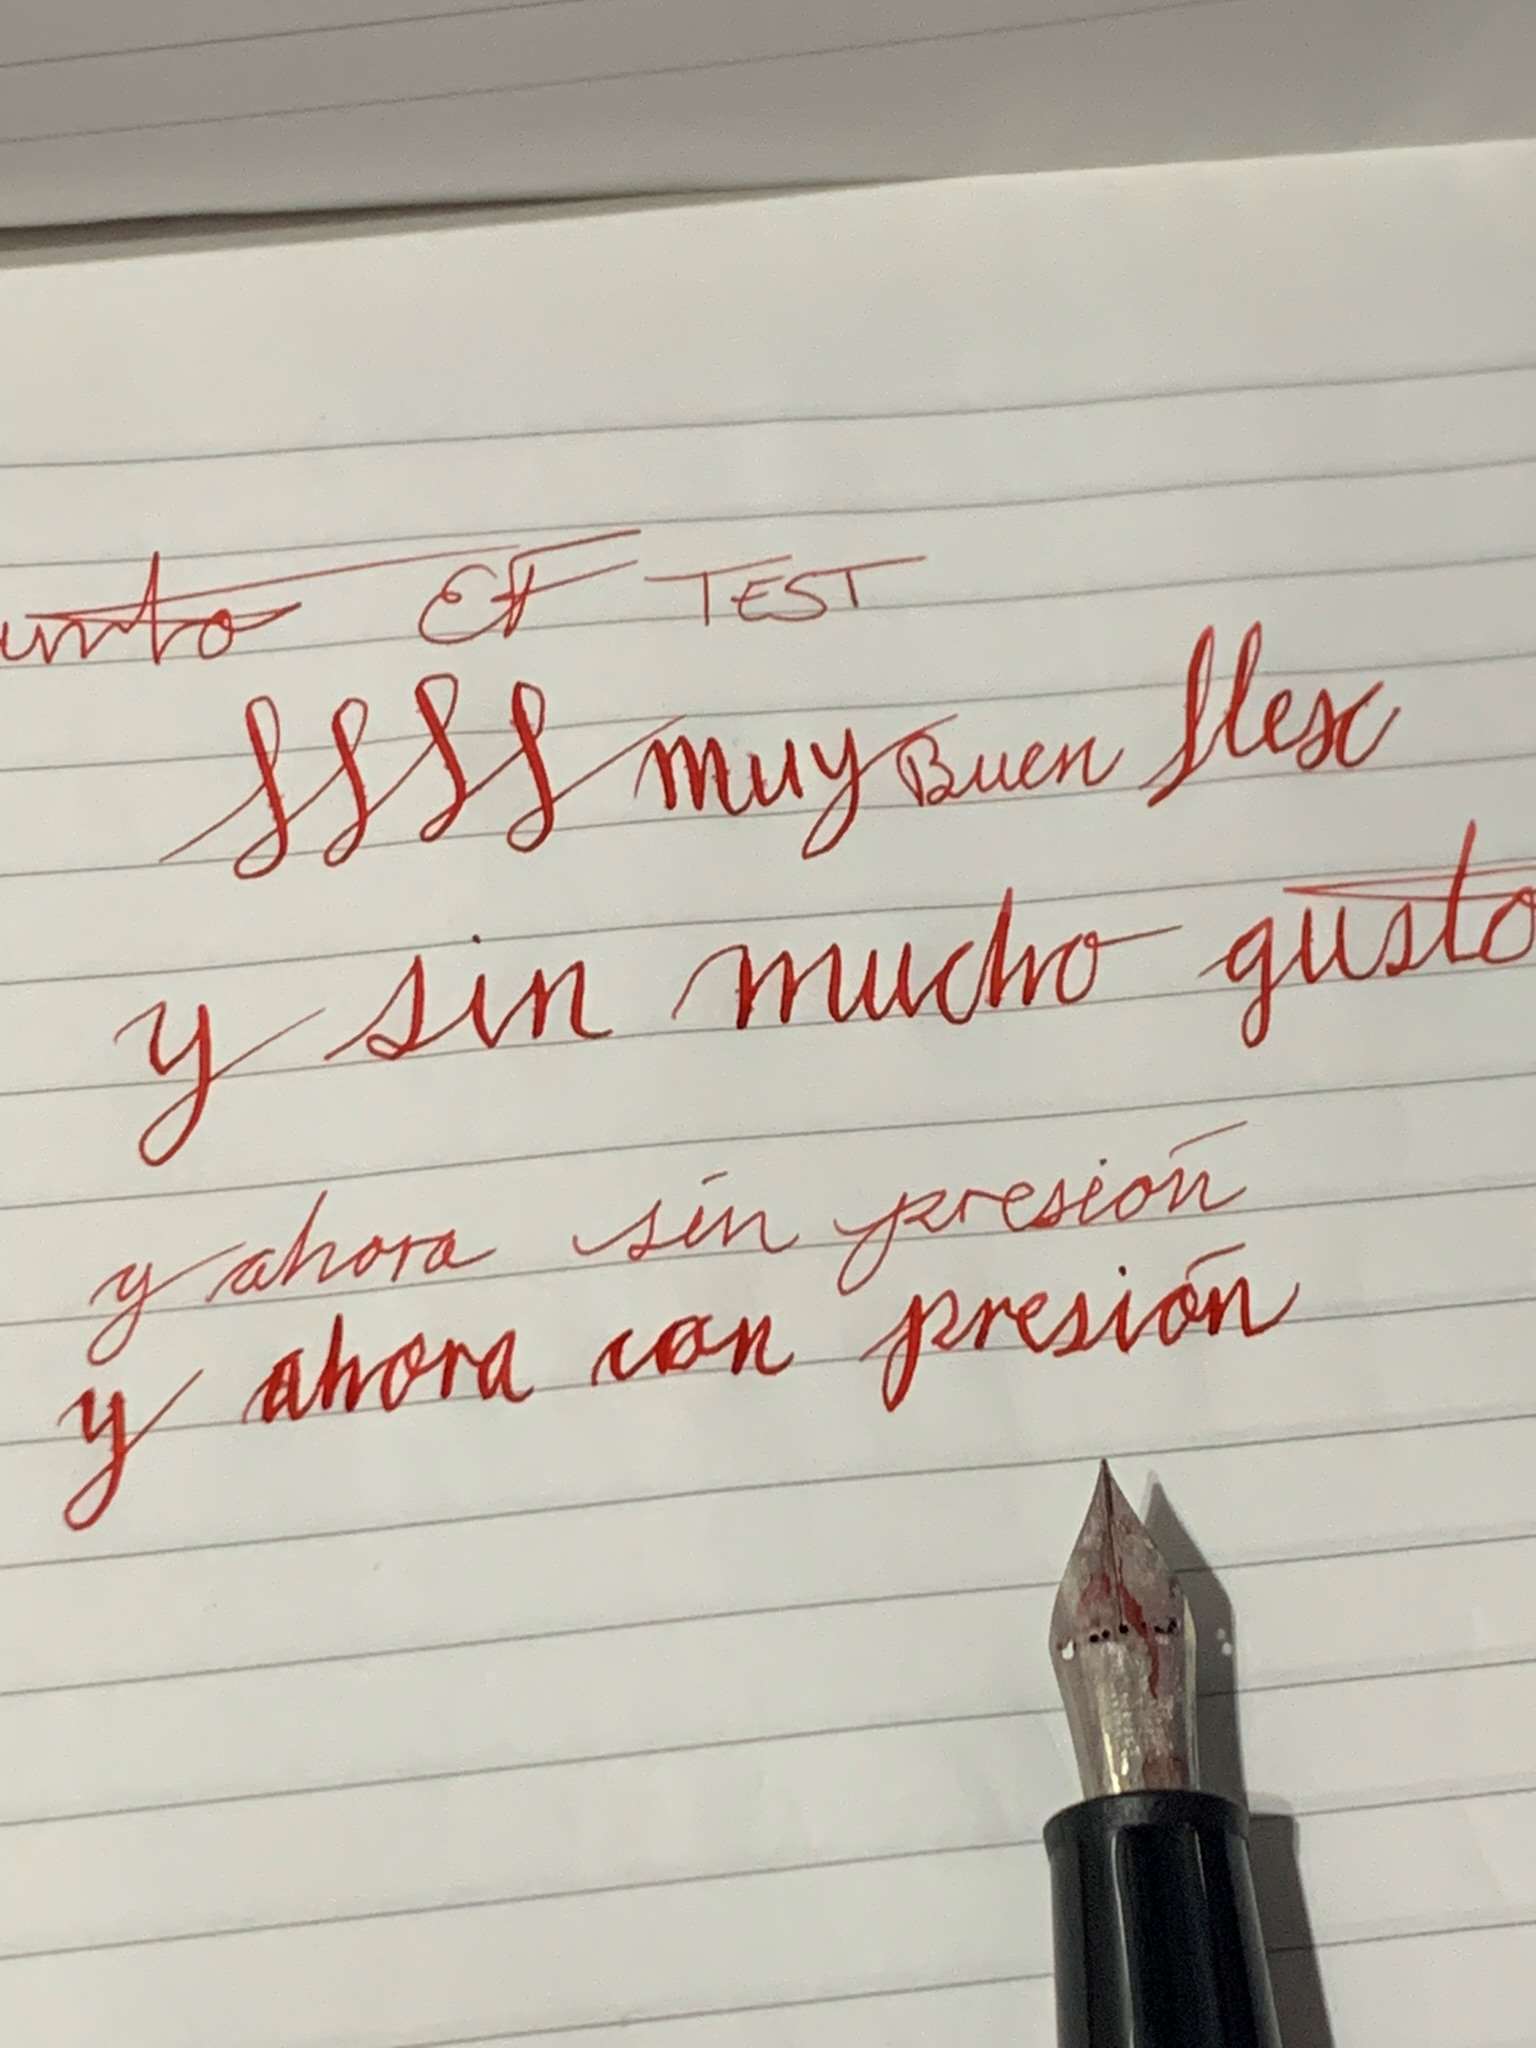 unto EF TEST
ffff muy Buen flex
y sin mucho gusto
y ahora sin presión
y ahora con presión